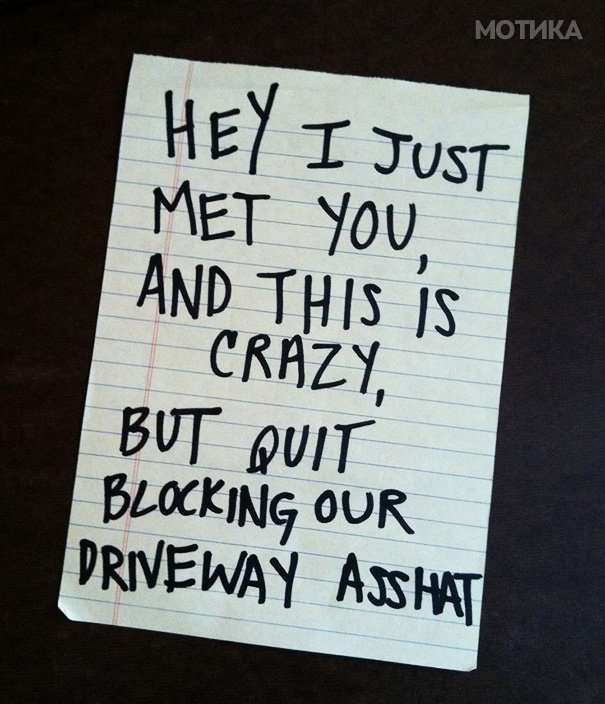 МОТИКА
HEY I JUST
MET YOU,
AND THIS IS
CRAZY,
BUT QUIT
BLOCKING OUR
DRIVEWAY ASSHAT